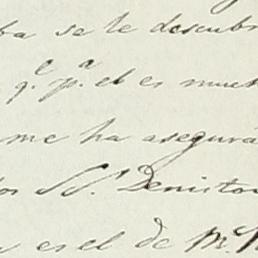 ba se le descubr
q.e p.a el es much
me ha asegura
los SS.s Deniston
es el de M.r